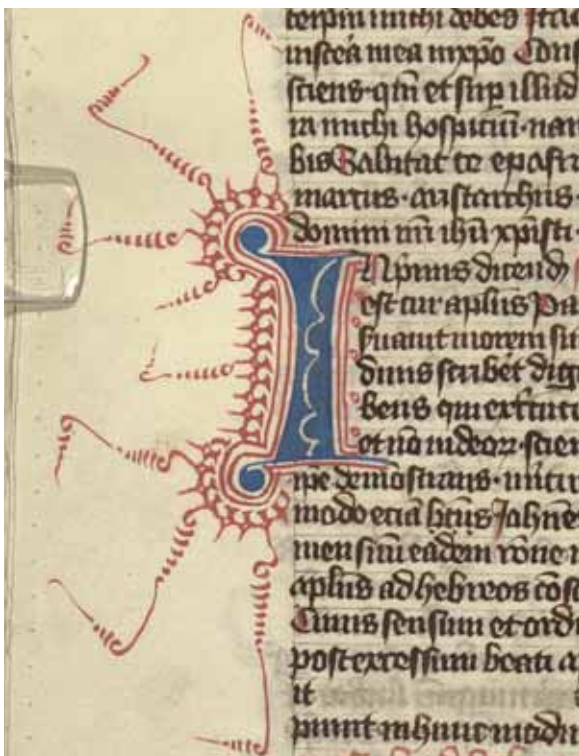 teipm michi debes Ita
uiscea mea in xpo Cons
sciens qm et sup illud
ra michi hospiciu nam
bis Salutat te epafr
marcus aristarchus
domini nri ihu xpisti
I Npimis dicend
est cur aplus Pa
suauit morem su
dinis scribet dig
bens qui ex circu
et no hebreor scien
ipe demostrans meritu
modo ecia btus Johne
men suu eadem rone n
aplus ad hebreos cos
Cuius sensum et ordi
post excessum beati a
it